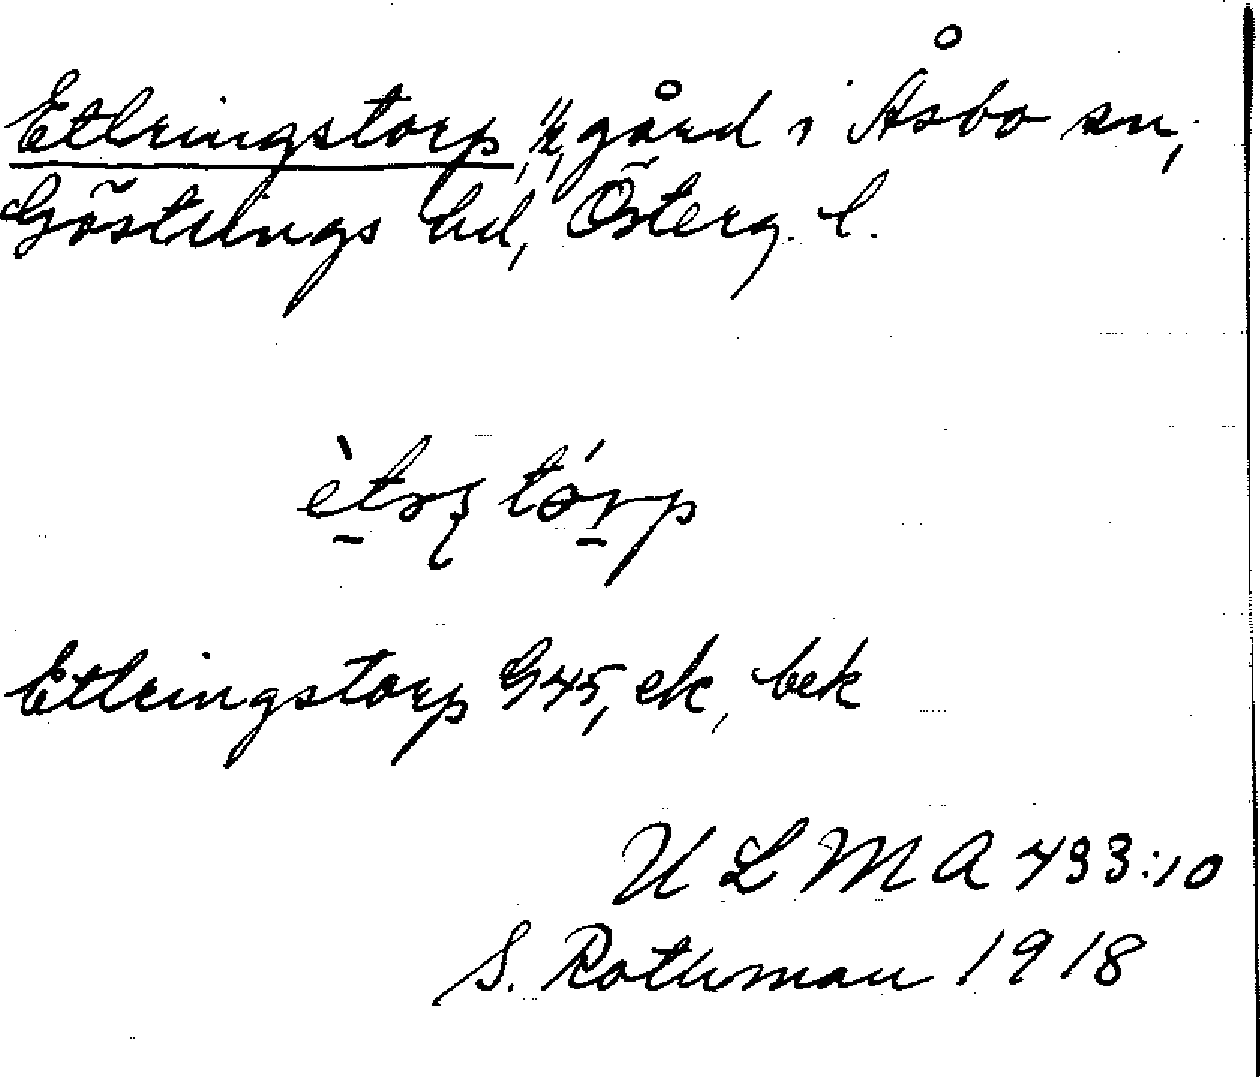 Etlringstorp, gård i Åsbo sn,
Göstrings hd, Österg. l.
Etlringstorp G45, ek, bek
ULMA 493:10
S. Rothman 1918